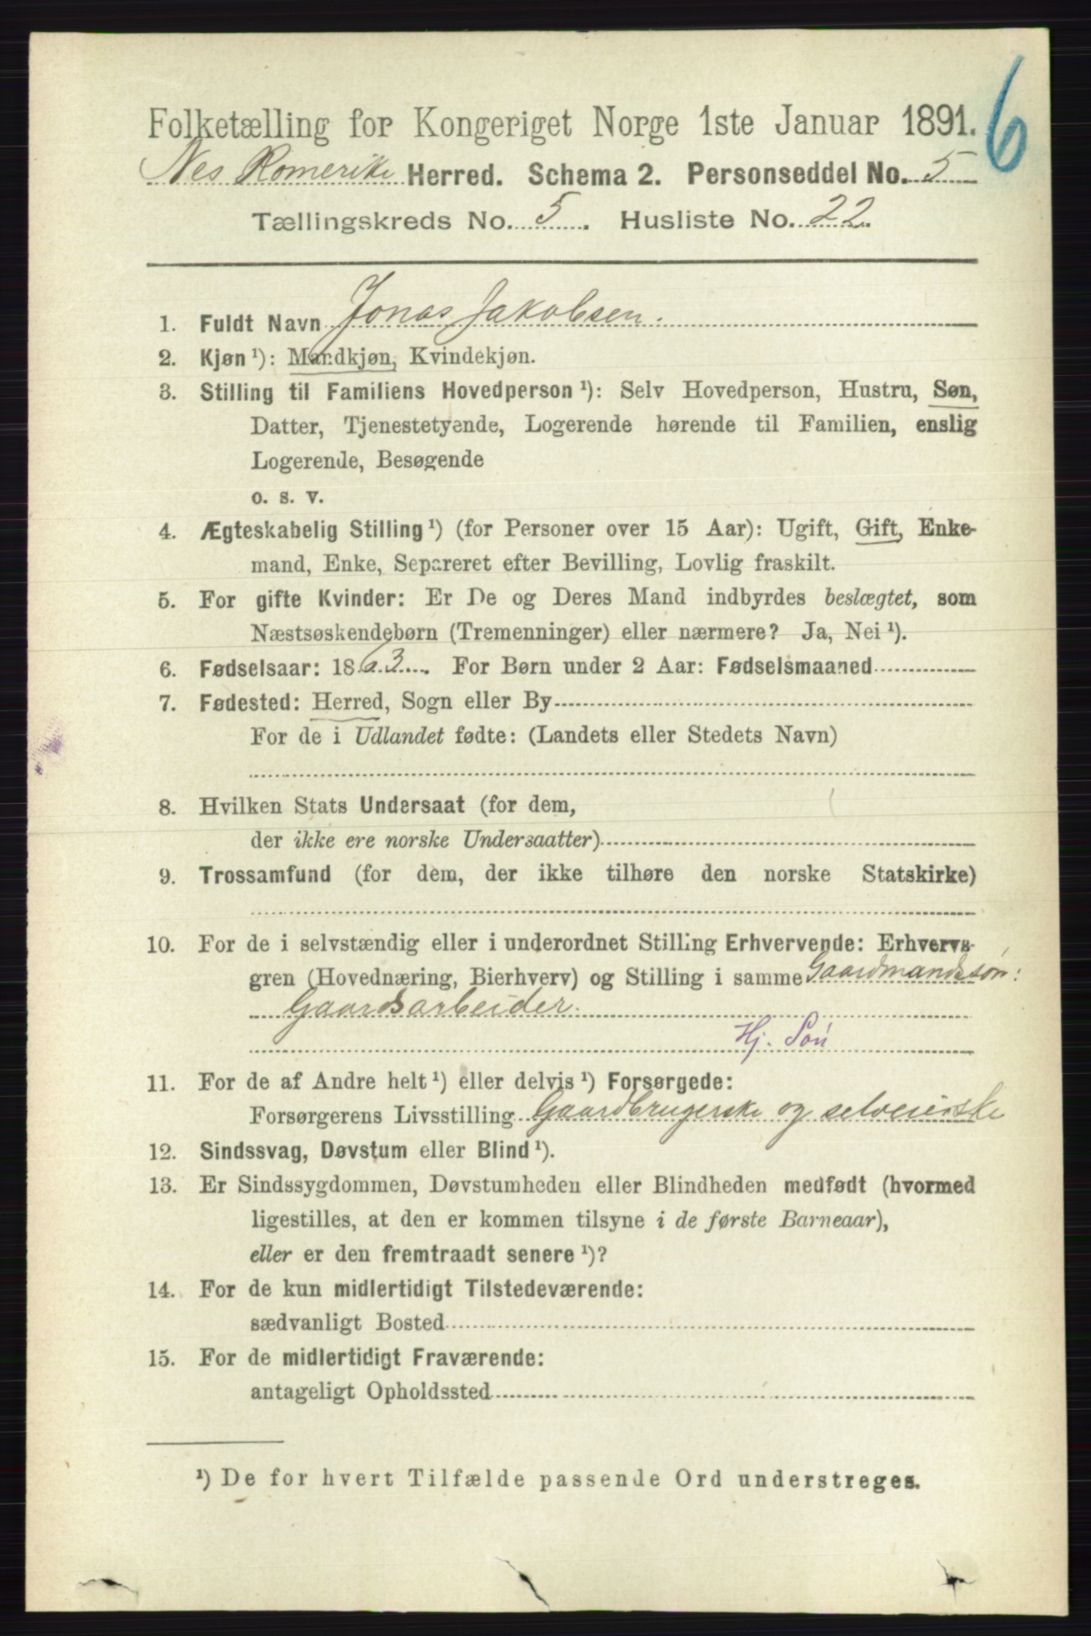 6
Folketælling for Kongeriget Norge 1ste Januar 1891.
Nes Romerike Herred. Schema 2. Personseddel No. 5
Tællingskreds No. 5. Husliste No. 22.
1. Fuldt Navn Jonas Jakobsen.
2. Kjøn ¹): Mandkjøn, Kvindekjøn.
3. Stilling til Familiens Hovedperson ¹): Selv Hovedperson, Hustru, Søn,
Datter, Tjenestetyende, Logerende hørende til Familien, enslig
Logerende, Besøgende
o. s. v.
4. Ægteskabelig Stilling ¹) (for Personer over 15 Aar): Ugift, Gift, Enke-
mand, Enke, Separeret efter Bevilling, Lovlig fraskilt.
5. For gifte Kvinder: Er De og Deres Mand indbyrdes beslægtet, som
Næstsøskendebørn (Tremenninger) eller nærmere? Ja, Nei ¹).
6. Fødselsaar: 1863. For Børn under 2 Aar: Fødselsmaaned
7. Fødested: Herred, Sogn eller By
For de i Udlandet fødte: (Landets eller Stedets Navn)
8. Hvilken Stats Undersaat (for dem,
der ikke ere norske Undersaatter)
9. Trossamfund (for dem, der ikke tilhøre den norske Statskirke)
10. For de i selvstændig eller i underordnet Stilling Erhvervende: Erhvervs-
gren (Hovednæring, Bierhverv) og Stilling i samme Gaardmandssøn:
Gaardsarbeider.
Hj. Søn
11. For de af Andre helt ¹) eller delvis ¹) Forsørgede:
Forsørgerens Livsstilling Gaardbrugerske og selveierske
12. Sindssvag, Døvstum eller Blind ¹).
13. Er Sindssygdommen, Døvstumheden eller Blindheden medfødt (hvormed
ligestilles, at den er kommen tilsyne i de første Barneaar),
eller er den fremtraadt senere ¹)?
14. For de kun midlertidigt Tilstedeværende:
sædvanligt Bosted
15. For de midlertidigt Fraværende:
antageligt Opholdssted
¹) De for hvert Tilfælde passende Ord understreges.